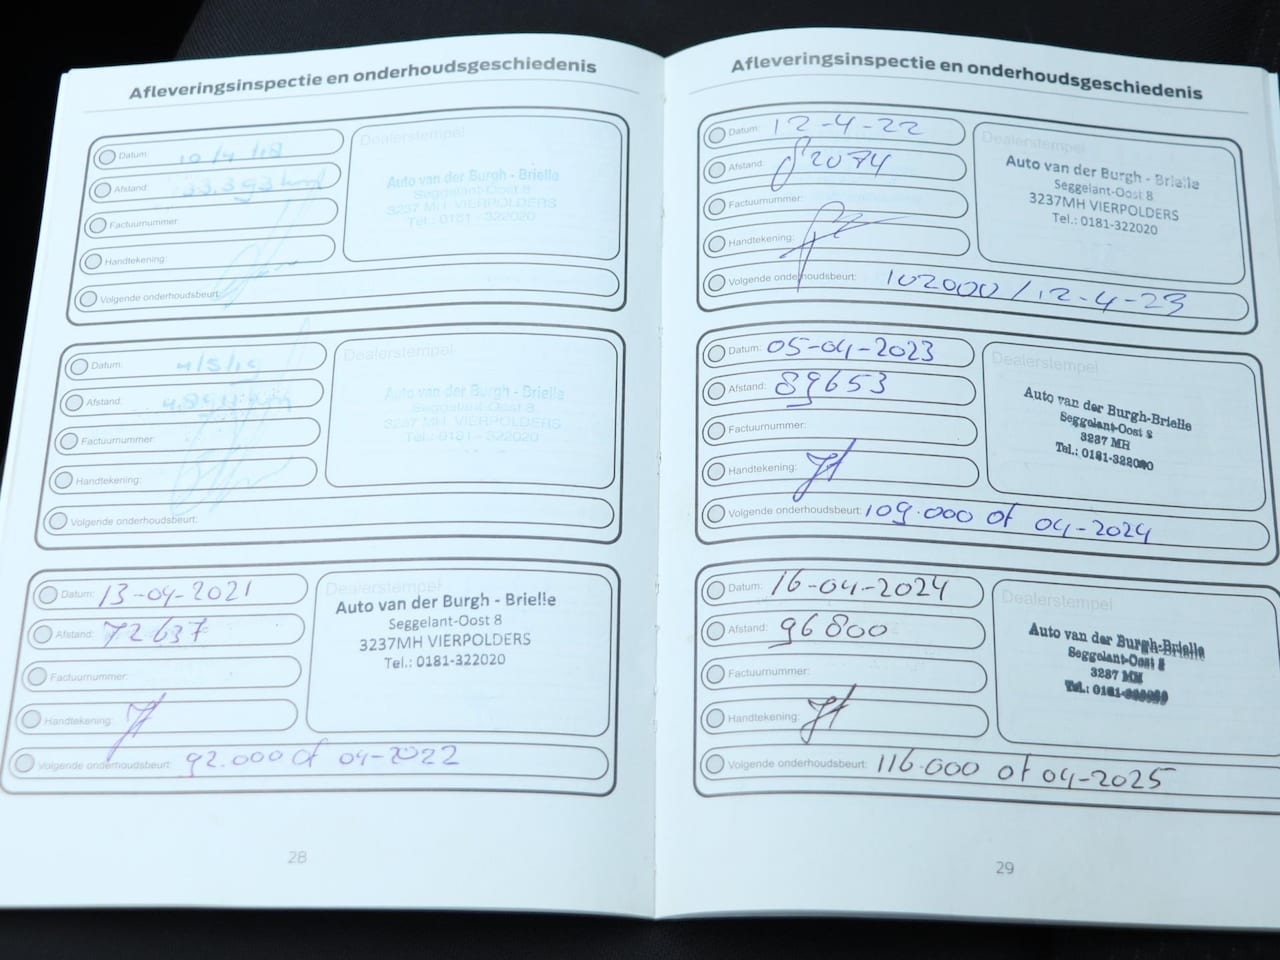 Afleveringsinspectie en onderhoudsgeschiedenis
Datum: 10/4/18
Afstand: 33.393 km
Factuurnummer:
Handtekening:
Volgende onderhoudsbeurt:
Dealerstempel
Auto van der Burgh - Brielle
Seggelant-Oost 8
3237 MH VIERPOLDERS
Tel.: 0181 - 322020
Datum: 4/5/19
Afstand:
Factuurnummer:
Handtekening:
Volgende onderhoudsbeurt:
Dealerstempel
Auto van der Burgh - Brielle
Seggelant-Oost 8
3237 MH VIERPOLDERS
Tel.: 0181 - 322020
Datum: 13-04-2021
Afstand: 72637
Factuurnummer:
Handtekening:
Volgende onderhoudsbeurt: 92.000 of 04-2022
Dealerstempel
Auto van der Burgh - Brielle
Seggelant-Oost 8
3237MH VIERPOLDERS
Tel.: 0181-322020
28
Afleveringsinspectie en onderhoudsgeschiedenis
Datum: 12-4-22
Afstand: 82074
Factuurnummer:
Handtekening:
Volgende onderhoudsbeurt: 102000 / 12-4-23
Dealerstempel
Auto van der Burgh - Brielle
Seggelant-Oost 8
3237MH VIERPOLDERS
Tel.: 0181-322020
Datum: 05-04-2023
Afstand: 89653
Factuurnummer:
Handtekening:
Volgende onderhoudsbeurt: 109.000 of 04-2024
Dealerstempel
Auto van der Burgh-Brielle
Seggelant-Oost 8
3237 MH
Tel.: 0181-322020
Datum: 16-04-2024
Afstand: 96800
Factuurnummer:
Handtekening:
Volgende onderhoudsbeurt: 116.000 of 04-2025
Dealerstempel
Auto van der Burgh-Brielle
Seggelant-Oost 8
3237 MH
Tel.: 0181-322020
29